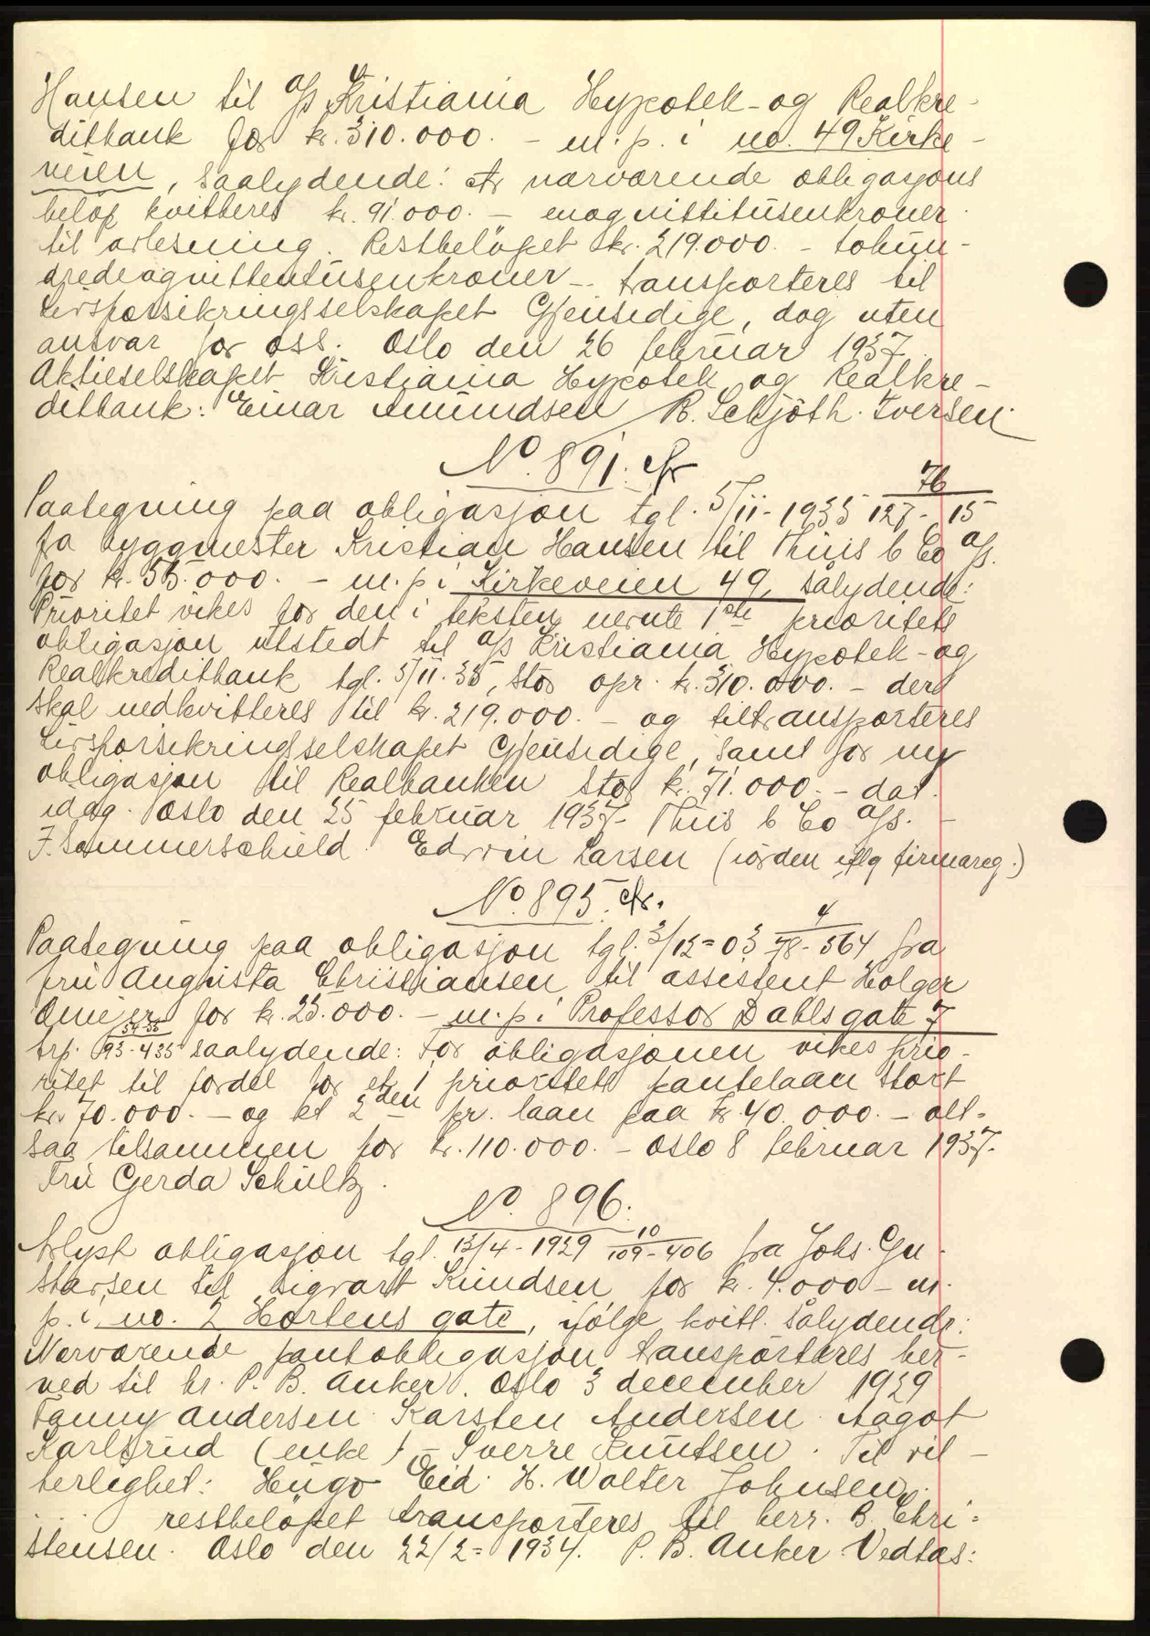 Hansen til a/s Kristiania Hypotek- og Realkre-
ditbank for kr. 310.000. - m. p. i no. 49 Kirke-
veien, saalydende: Av nærværende obligasjons
beløp kvitteres kr. 91.000. - enognittitusenkroner
til avlesning. Restbeløpet kr. 219.000. - tohun-
dredeognittentusenkroner - transporteres til
Livsforsikringsselskapet Gjensidige, dog uten
ansvar for oss. Oslo den 26 februar 1937.
Aktieselskapet Kristiania Hypotek og Realkre-
ditbank: Einar Amundsen / R. Schjöth-Iversen.
No. 891.
76
Paategning paa obligasjon tgl. 5/11-1935 127-15
fa byggmester Kristian Hansen til Thiis & Co a/s.
for kr. 55.000. - m. p. i Kirkeveien 49, sålydende:
Prioritet vikes for den i teksten nevnte 1ste prioritets
obligasjon utstedt til a/s Kristiania Hypotek- og
Realkreditbank tgl. 5/11.35, stor opr. kr. 310.000. - der
skal nedkvitteres til kr. 219.000. - og tiltransporteres
Livsforsikringsselskapet Gjensidige, samt for ny
obligasjon til Realbanken stor kr. 71.000. - dat.
idag. Oslo den 25 februar 1937. Thiis & Co a/s. -
F. Sommerschield. Edwin Larsen ( iflg firmareg.)
No. 895.
4
Paategning paa obligasjon tgl. 3/12-03 78-564 fra
fru Augusta Christiansen til assistent Holger
for kr. 25.000. - m. p. i Professor Dahls gate 7
trp. 93-435 saalydende: For obligasjonen vikes prio-
ritet til fordel for et 1 prioritets pantelaan stort
kr. 70.000. - og et 2den pr. laan paa kr. 40.000. - alt-
saa tilsammen for kr. 110.000. - Oslo 8 februar 1937.
Fru Gerda Schultz.
No. 896.
10
Avlyst obligasjon tgl. 13/4-1929 109-406 fra Johs. Gu-
stavsen til Sigvart Knudsen for kr. 4.000 - m.
p. i no. 2 Hortens gate, ifølge kvitt. sålydende:
Nærværende pantobligasjon transporteres her-
ved til hr. P. B. Anker. Oslo 3 december 1929
Fanny Andersen Karsten Andersen. Aagot
Karlsrud (enke) - Sverre Knutsen. Til vit-
terlighet: Hugo Eid. H. Walter Johnsen.
restbeløpet transporteres til herr. B. Chri-
stensen. Oslo den 22/2-1934. P. B. Anker. Vedtas: